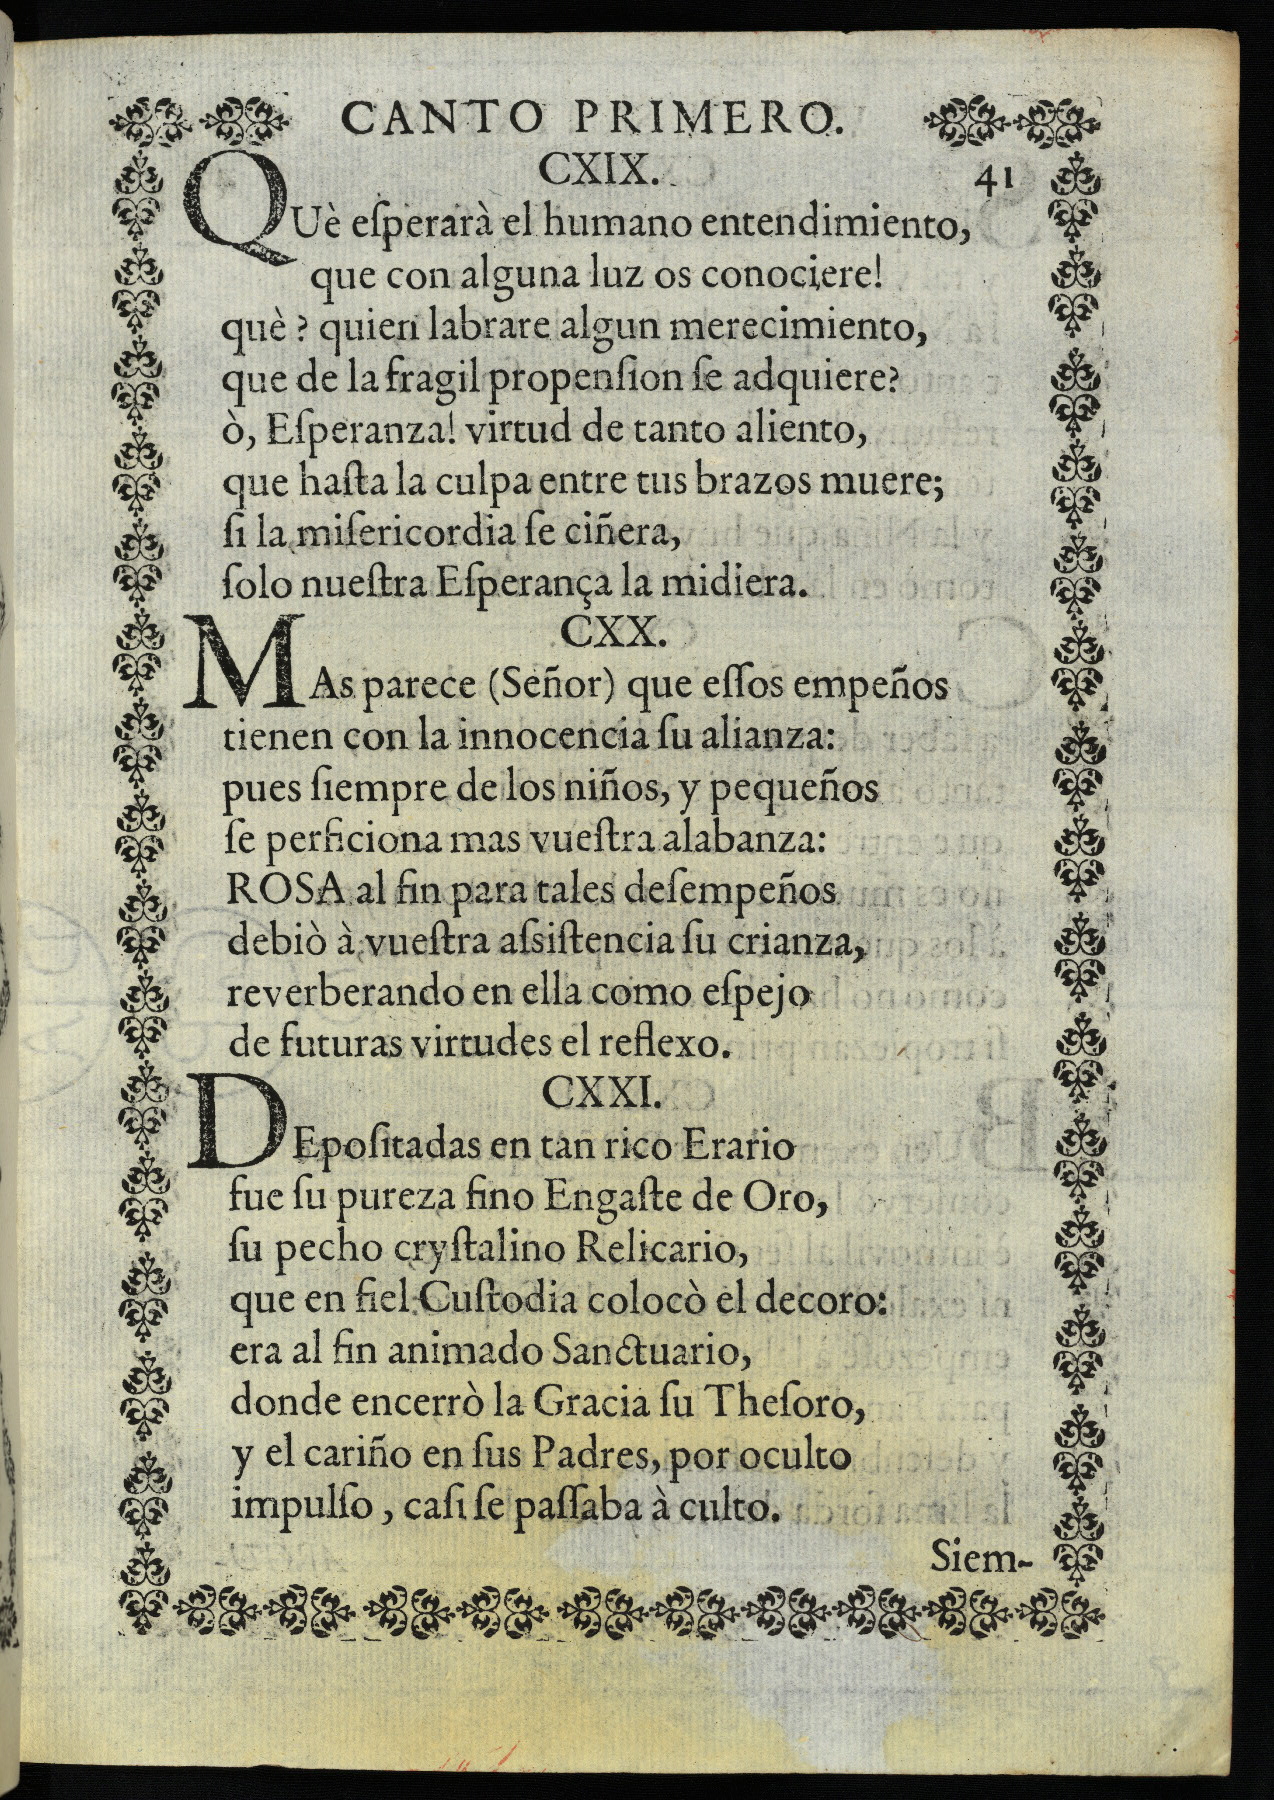 CANTO PRIMERO.
CXIX.
41
QUè eſperarà el humano entendimiento,
que con alguna luz os conociere!
què? quien labrare algun merecimiento,
que de la fragil propenſion ſe adquiere?
ò, Eſperanza! virtud de tanto aliento,
que haſta la culpa entre tus brazos muere;
ſi la miſericordia ſe ciñera,
ſolo nueſtra Eſperança la midiera.
CXX.
MAs parece (Señor) que eſſos empeños
tienen con la innocencia ſu alianza:
pues ſiempre de los niños, y pequeños
ſe perficiona mas vueſtra alabanza:
ROSA al fin para tales deſempeños
debiò à vueſtra aſsiſtencia ſu crianza,
reverberando en ella como eſpejo
de futuras virtudes el reflexo.
CXXI.
DEpoſitadas en tan rico Erario
fue ſu pureza fino Engaſte de Oro,
ſu pecho cryſtalino Relicario,
que en fiel Cuſtodia colocò el decoro:
era al fin animado Sanctuario,
donde encerrò la Gracia ſu Theſoro,
y el cariño en ſus Padres, por oculto
impulſo, caſi ſe paſſaba à culto.
Siem-